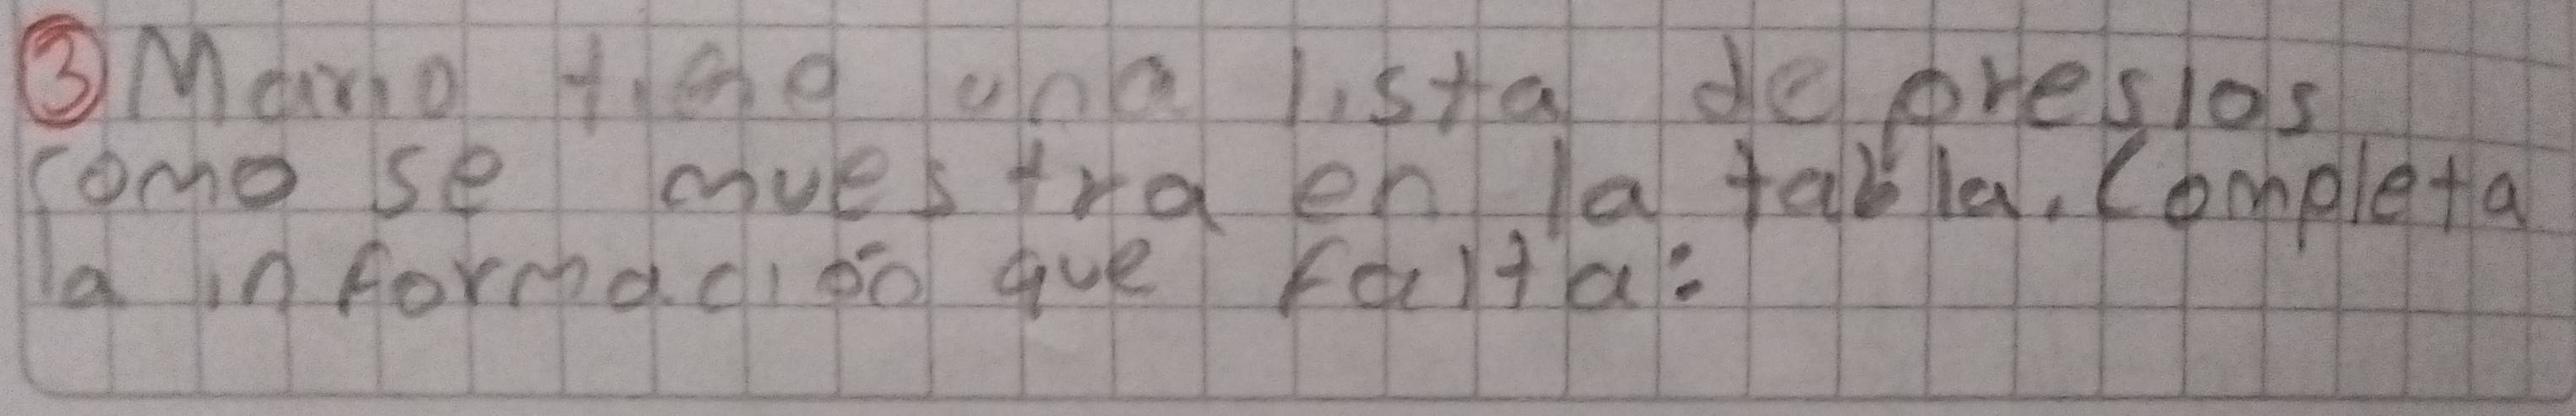 ③ Mario tiene una lista de presios
como se muestra en la tabla. Completa
la información que falta: